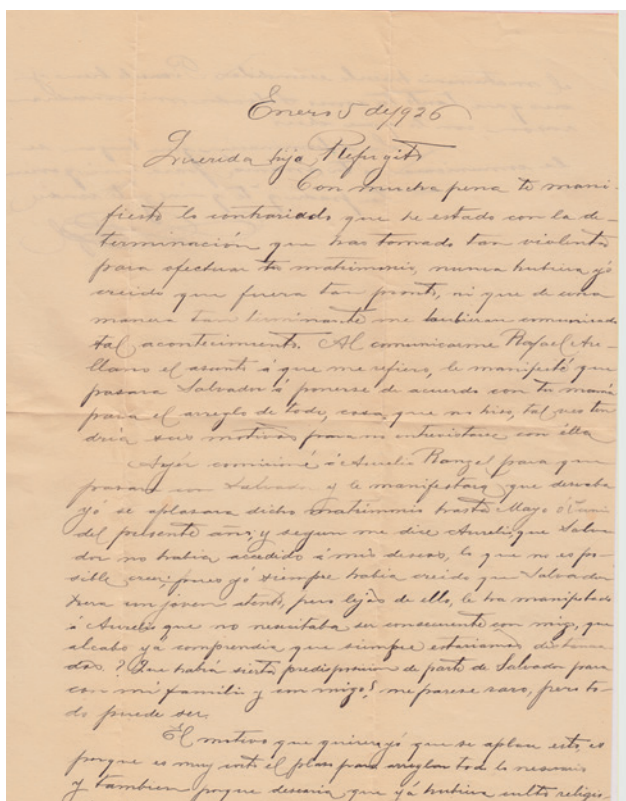 Enero 5 de 1926
Querida hija, Refugito
Con mucha pena te mani-
fiesto lo contrariado que he estado con la de-
terminación que has tomado tan violenta
para efectuar tu matrimonio, nunca hubiera yó
creido que fuera tan pronto, ni que de una
manera tan terminante me hubieran comunicado
tal acontecimiento. Al comunicarme Rafael Are-
llano el asunto á que me refiero, le manifesté que
pasara Salvador á ponerse de acuerdo con tu mamá
para el arreglo de todo, cosa, que no hiso, tal ves ten
dria sus motivos para no entrevistarse con élla
Ayér comicioné á Aurelio Rangel para que
pasara con Salvador y le manifestara que deseaba
yó se aplasara dicho matrimonio hasta Mayo ó Junio
del presente año, y segun me dice Aurelio, que Salva-
dor no habia accedido á mis deseos, lo que no es po-
sible creer, pues yó siempre habia creido que Salvador
era un jóven atento, pero lejos de ello, le ha manifestado
á Aurelio que no necesitaba ser consecuente con migo, que
alcabo yá comprendia que siempre estariamos distancia
dos. ? Que habrá sierta predisposicion de parte de Salvador para
con mi familia y con migo? me parese raro, pero to-
do puede ser.
El motivo que quisiera yó que se aplase esto, es
porque es muy corto el plaso para arreglar todo lo nesesario
y tambien porque desearia que yá hubiera culto religio-